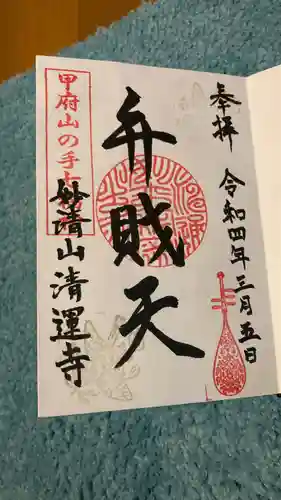 奉拝
令和四年三月五日
弁賊天
甲府山の手七
妙清山清運寺